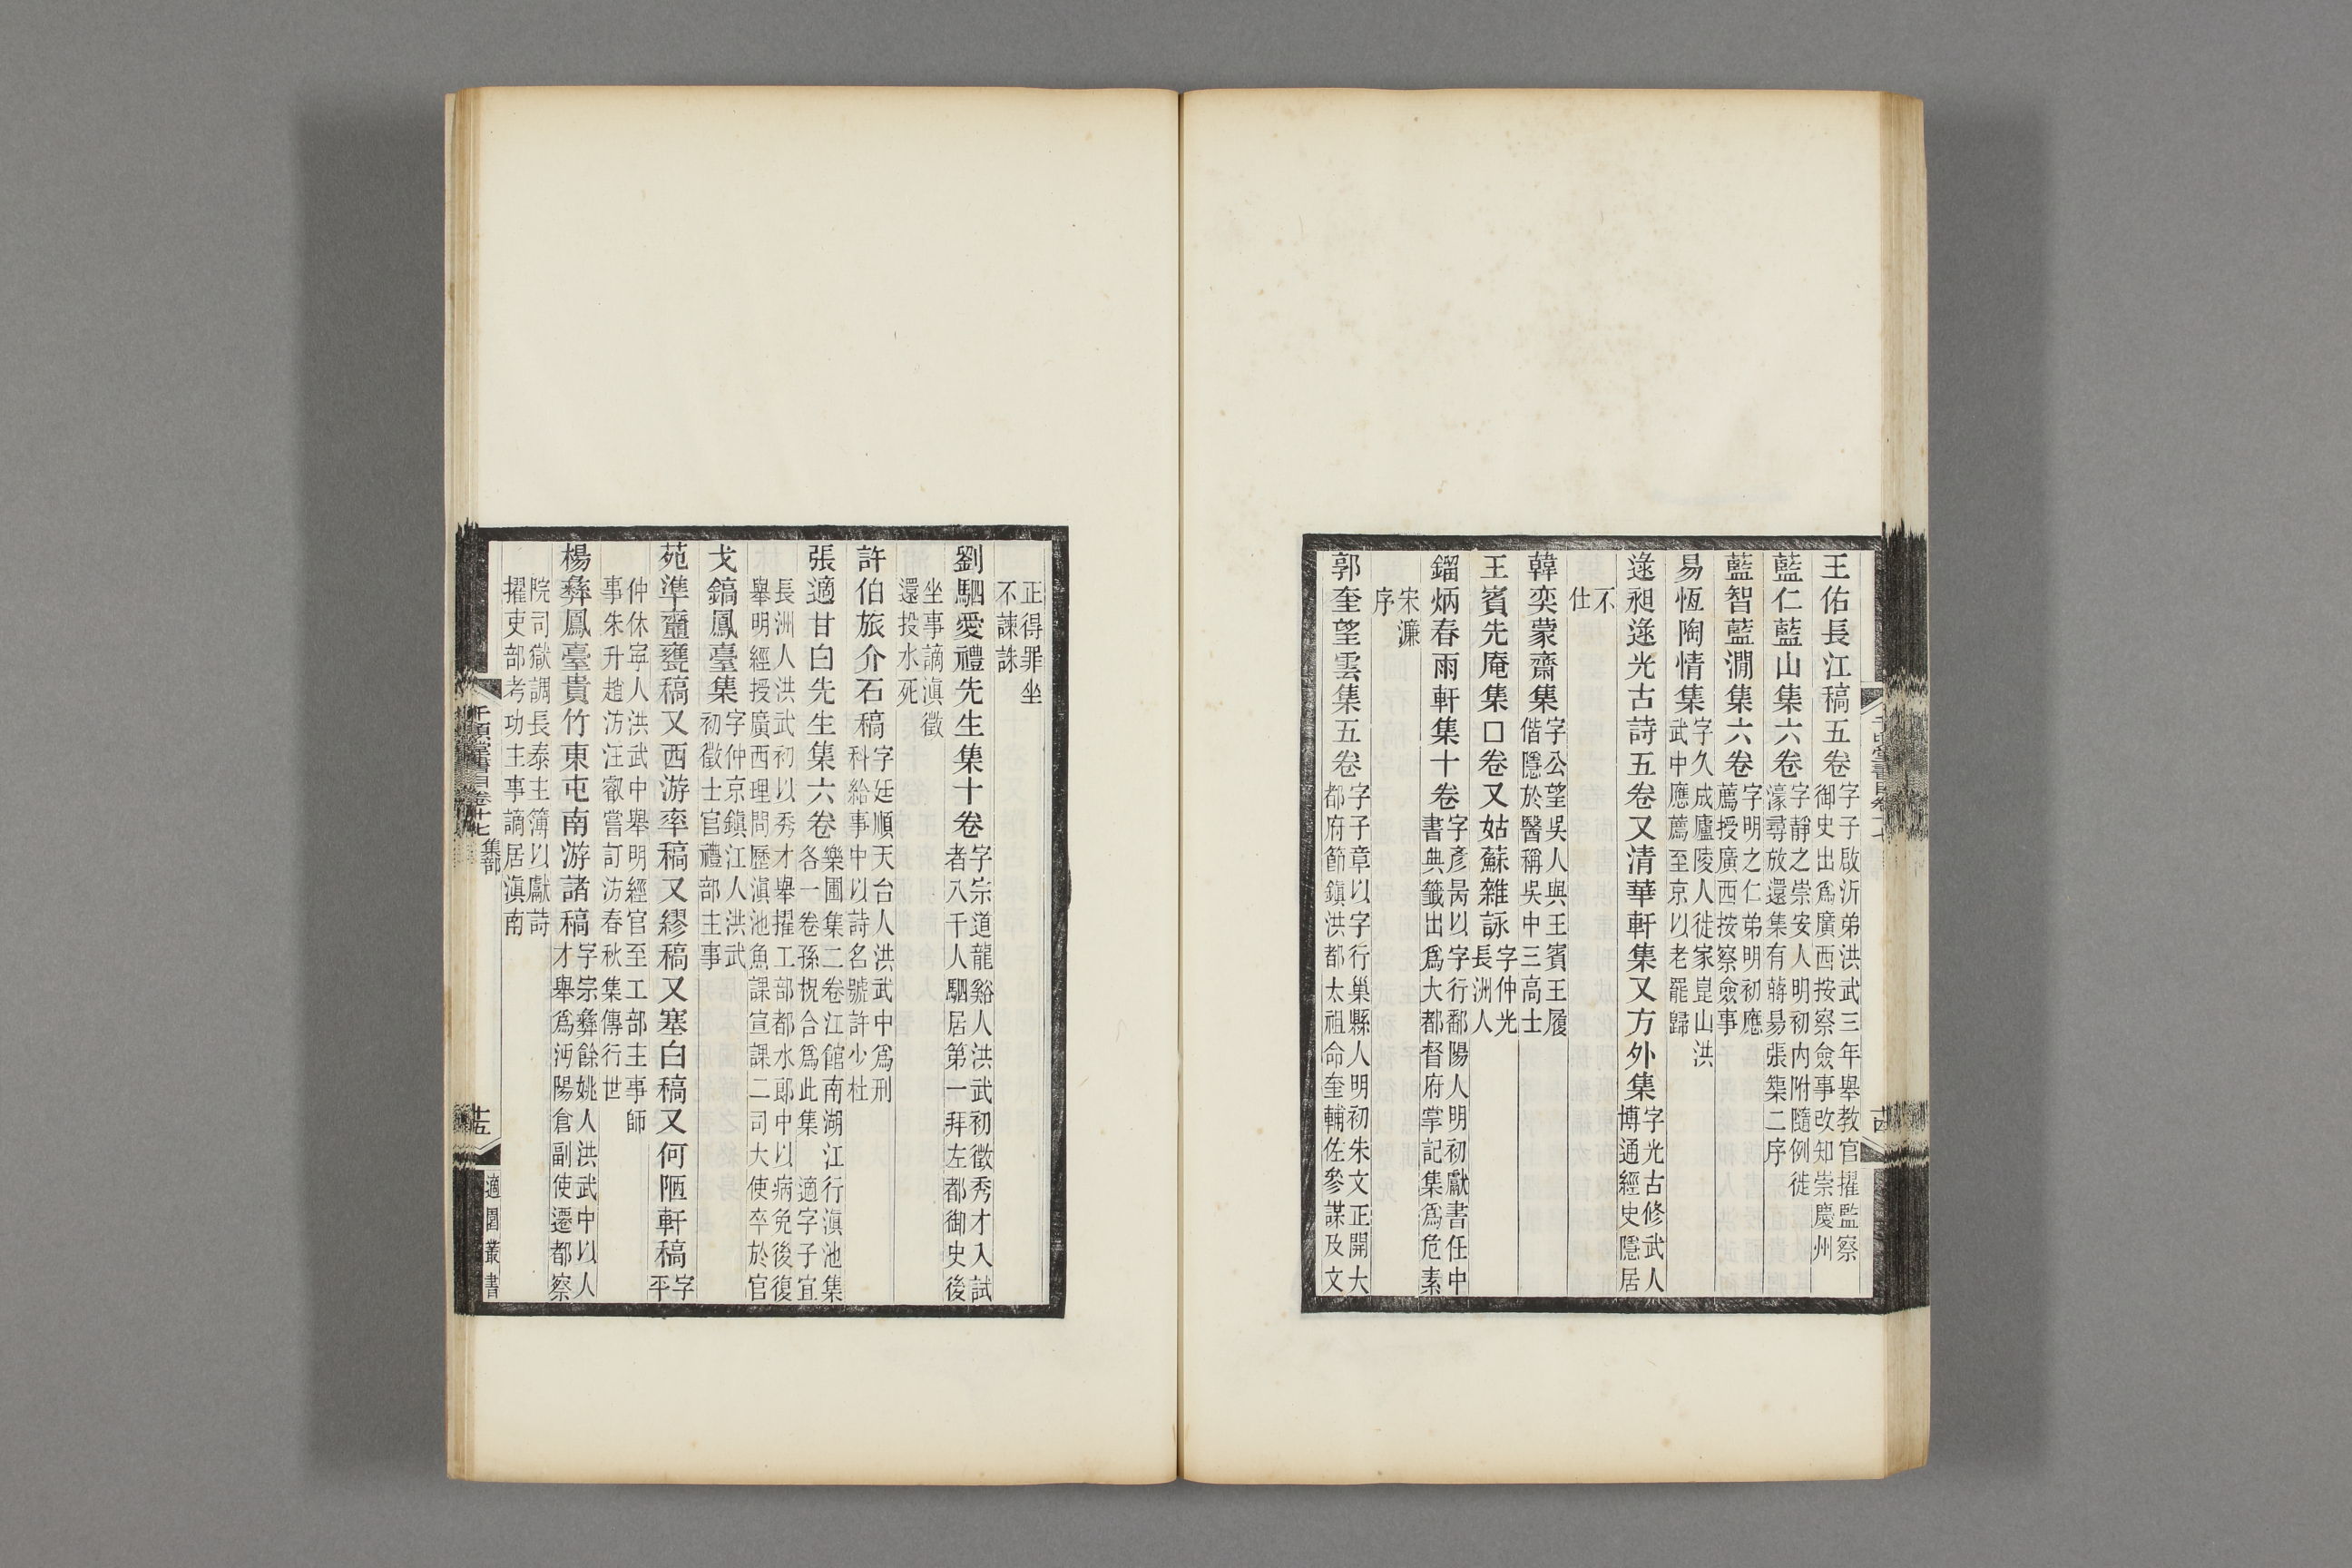 王佑長江稿五卷字子啟沂弟洪武三年舉教官擢監察
御史出爲廣西按察僉事改知崇慶州
藍仁藍山集六卷字靜之崇安人明初內附隨例徙
濠尋放還集有蔣昜張榘二序
藍智藍澗集六卷字明之仁弟明初應
薦授廣西按察僉事
易恆陶情集字久成廬陵人徙家崑山洪
武中應薦至京以老罷歸
逯昶逯光古詩五卷又清華軒集又方外集字光古修武人
博通經史隱居
不
仕
韓奕蒙齋集字公望吳人與王賓王履
偕隱於醫稱吳中三高士
王賓光庵集口卷又姑蘇雜詠字仲光
長洲人
鎦炳春雨軒集十卷字彥昺以字行鄱陽人明初獻書任中
書典籤出爲大都督府掌記集爲危素
宋濂
序
郭奎望雲集五卷字子章以字行巢縣人明初朱文正開大
都府節鎮洪都太祖命奎輔佐參謀及文
正得罪坐
不諫誅
劉駟愛禮先生集十卷字宗道龍谿人洪武初徵秀才入試
者八千人駟居第一拜左都御史後
坐事謫滇徵
還投水死
許伯旅介石稿字廷順天台人洪武中爲刑
科給事中以詩名號許少杜
張適甘白先生集六卷樂圃集二卷江館南湖江行滇池集
各一卷孫枧合爲此集 適字子宜
長洲人洪武初以秀才舉擢工部都水郎中以病免後復
舉明經授廣西理問歷滇池魚課宣課二司大使卒於官
戈鎬鳳臺集字仲京鎮江人洪武
初徵士官禮部主事
苑準虀甕稿又西游率稿又繆稿又塞白稿又何陋軒稿字
平
仲休寧人洪武中舉明經官至工部主事師
事朱升趙汸汪叡嘗訂汸春秋集傳行世
楊彝鳳臺貴竹東屯南游諸稿字宗彝餘姚人洪武中以人
才舉爲沔陽倉副使遷都察
院司獄調長泰主簿以獻詩
擢吏部考功主事謫居滇南
千頃堂書目卷十七 集部
十五
適園叢書